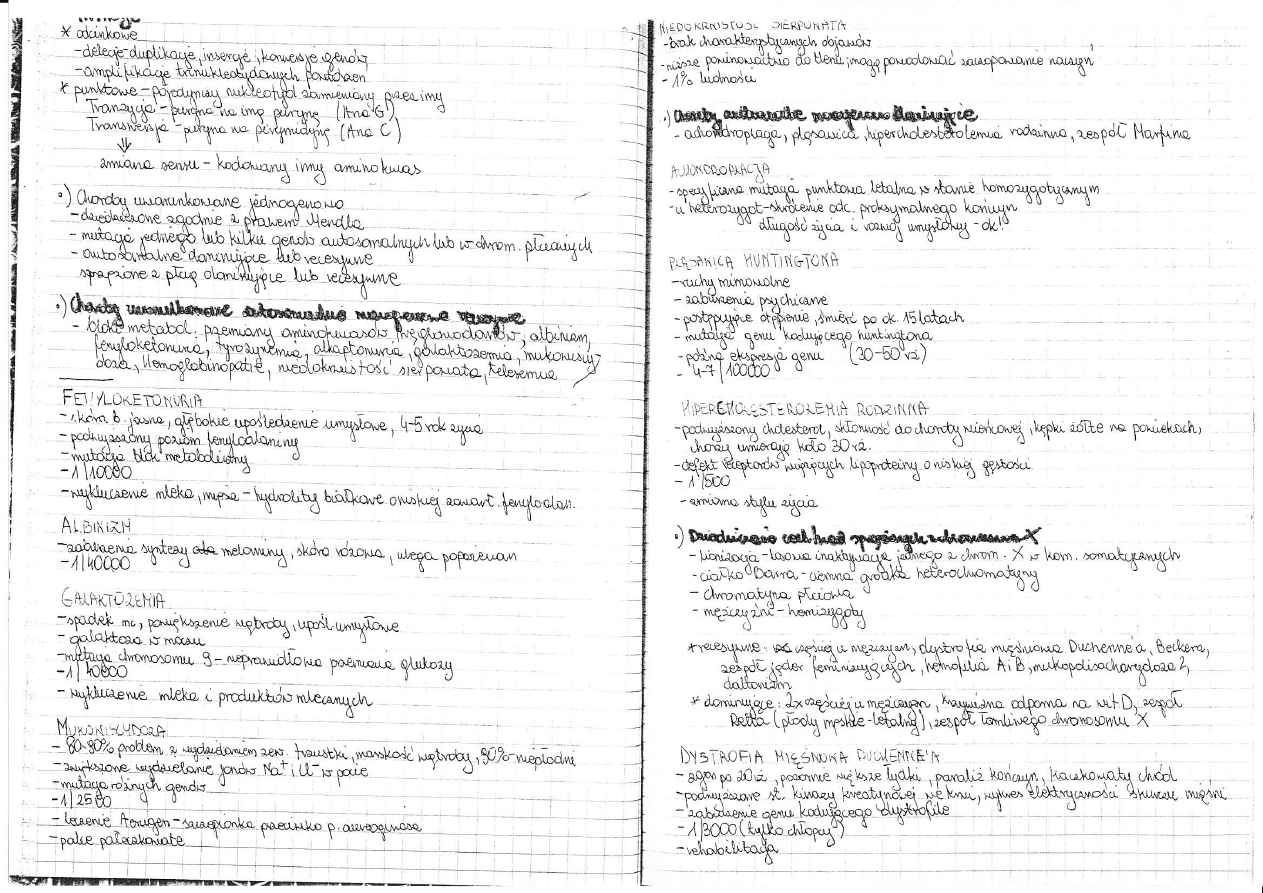 * odcinkowe
- delecje, duplikacje, insercje, konwersje genów
- amplifikacje trinukleotydowych powtórzeń
* punktowe - pojedynczy nukleotyd zamieniony przez inny
Tranzycja - puryna na inną purynę (A na G)
Transwersja - puryna na pirymidynę (A na C)
⇓
zmiana sensu - kodowany inny aminokwas
•) Choroby uwarunkowane jednogenowo
- dziedziczone zgodnie z prawem Mendla
- mutacja jednego lub kilku genów autosomalnych lub w chrom. płciowych
- autosomalne dominujące lub recesywne
sprzężone z płcią dominujące lub recesywne
•) Choroby uwarunkowane autosomalnie recesywne
- bloki metabol. przemiany aminokwasów, węglowodanów, albinizm,
fenyloketonuria, tyrozynemia, alkaptonuria, galaktozemia, mukowiscy-
doza, hemoglobinopatie, niedokrwistość sierpowata, talasemia
FENYLOKETONURIA
- skóra b. jasna, głębokie upośledzenie umysłowe, 4-5 rok życia
- podwyższony poziom fenyloalaniny
- mutacja blok metaboliczny
- 1/10000
- wykluczenie mleka, mięsa - hydrolity białkowe o niskiej zawart. fenyloalan.
ALBINIZM
- zaburzenia syntezy melaniny, skóra różowa, ulega poparzeniom
- 1/40000
GALAKTOZEMIA
- spadek mc, powiększenie wątroby, upośl umysłowe
- galaktoza w moczu
- mutacja chromosomu 9 - nieprawidłowa przemiana glukozy
- 1/40000
- wykluczenie mleka i produktów mlecznych
MUKOWISCYDOZA
- 80-90% problem z wydzielaniem zew. trzustki, marskość wątroby, 90% - niepłodni
- zwiększone wydzielanie jonów Na⁺ i Cl⁻ w pocie
- mutacja różnych genów
- 1/2500
- leczenie Aerugen - szczepionka przeciwko p. aeruginosa
- palce pałeczkowate
NIEDOKRWISTOŚĆ SIERPOWATA
- brak charakterystycznych objawów
- niższe powinowactwo do tlenu, mogą powodować zaczopowanie naczyń
- 1% ludności
•) Choroby dominujące
- achondroplazja, pląsawica, hipercholesterolemia rodzinna, zespół Marfana
ACHONDROPLAZJA
- specyficzna mutacja punktowa letalna w stanie homozygotycznym
- u heterozygot - skrócenie odc. proksymalnego kończyn
długość życia i rozwój umysłowy - ok!
PLĄSAWICA HUNTINGTONA
- ruchy mimowolne
- zaburzenia psychiczne
- postępujące otępienie, śmierć po ok. 15 latach
- mutacja genu kodującego huntingtona
- późna ekspresja genu (30-50 rż)
- 4-7/100000
HIPERCHOLESTEROLEMIA RODZINNA
- podwyższony cholesterol, skłonność do choroby wieńcowej, kępki żółte na powiekach,
chorzy umierają koło 30 rż.
- defekt receptorów wiążących lipoproteiny o niskiej gęstości
- 1/500
- zmiana stylu życia
•) Dziedziczenie cech sprzężonych z chromosomem X
- lionizacja - losowa inaktywacja jednego z chrom. X w kom. somatycznych
- ciałko Barra - ciemna grudka heterochromatyny
- chromatyna płciowa
- mężczyźni - hemizygoty
* recesywne: częściej u mężczyzn, dystrofia mięśniowa Duchenne'a, Beckera,
zespół jąder feminizujących, hemofilia A i B, mukopolisacharydoza 2,
daltonizm
* dominujące: 2x częściej u mężczyzn, krzywizna odporna na wit D, zespół
Retta (płody męskie - letalny), zespół łamliwego chromosomu X
DYSTROFIA MIĘŚNIOWA DUCHENNE'A
- zgon po 20 rż, pozornie większe łydki, paraliż kończyn, kaczkowaty chód
- podwyższone st. kinazy kreatynowej we krwi, wykres elektryczności skurczu mięśni
- zaburzenie genu kodującego dystrofię
- 1/3000 (tylko chłopcy)
- rehabilitacja